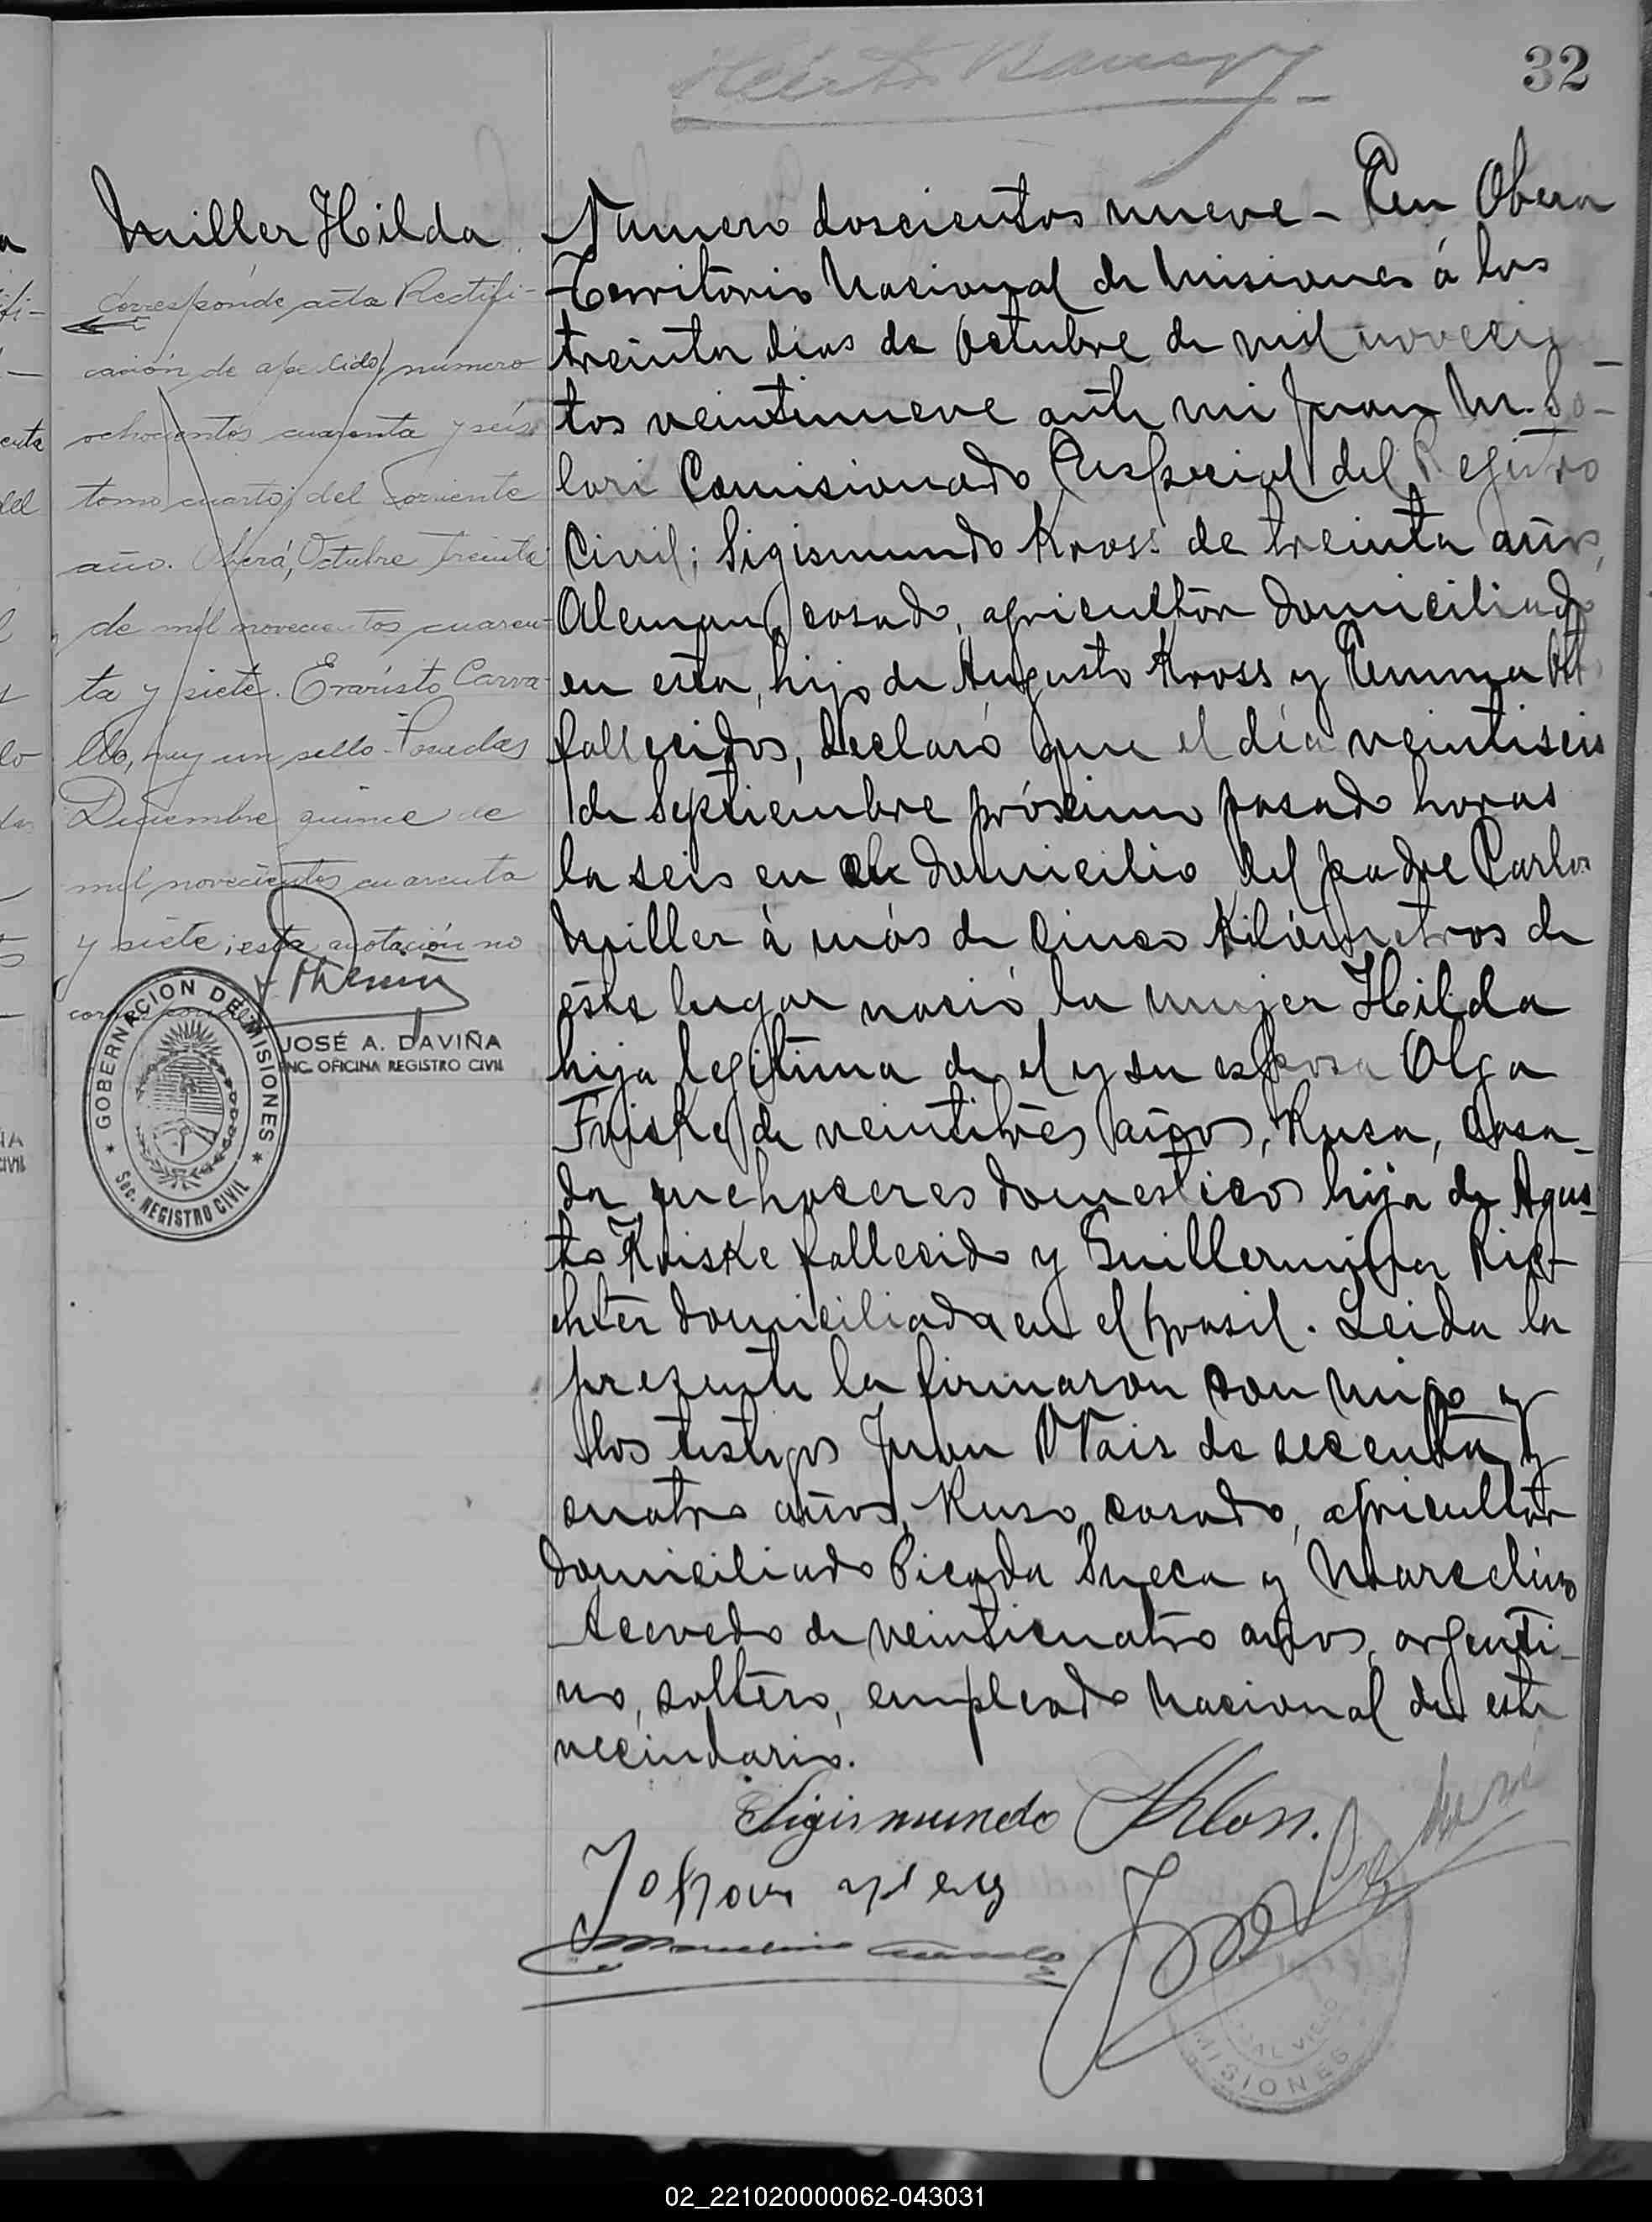 32
Miller Hilda
Corresponde acta Rectifi-
cación de apellido, número
ochocientos cuarenta y seis
tomo cuarto, del corriente
año. Oberá, Octubre treinta
de mil novecientos cuaren-
ta y siete. Evaristo Carva-
llo, hay un sello. Posadas
Diciembre quince de
mil novecientos cuarenta
y siete; esta anotación no
corresponde
JOSÉ A. DAVIÑA
ENC. OFICINA REGISTRO CIVIL
GOBERNACION DE MISIONES
Sec. REGISTRO CIVIL
Numero doscientos nueve - En Obera
Territorio Nacional de Misiones á los
treinta dias de Octubre de mil novecien
tos veintinueve ante mi Juan M. So-
lari Comisionado Especial del Registro
Civil; Sigismundo Kross de treinta años,
Aleman, casado, agricultor domiciliado
en esta, hijo de Augusto Kross y Emma
fallecidos, declaró que el día veintiseis
de Septiembre próximo pasado horas
la seis en el domicilio del padre Carlos
Miller à más de cinco Kilómetros de
éste lugar nació la mujer Hilda
hija legitima de el y su esposa Olga
Friske de veintitrés años, Rusa, Casa-
da quehaceres domesticos hija de Agus-
to Friske fallecido y Guillermina Ric-
hter domiciliada en el brasil. Leida la
prezente la firmaron con migo y
los testigos Juan de secenta y
cuatro años, Ruso, casado, agricultor
domiciliado Picada Sueca y Marcelino
Acevedo de veinticuatro años, argenti-
no, soltero, empleado Nacional de este
vecindario.
Sigismundo
Johan
Marcelino Acevedo
MISIONES
02_221020000062-043031